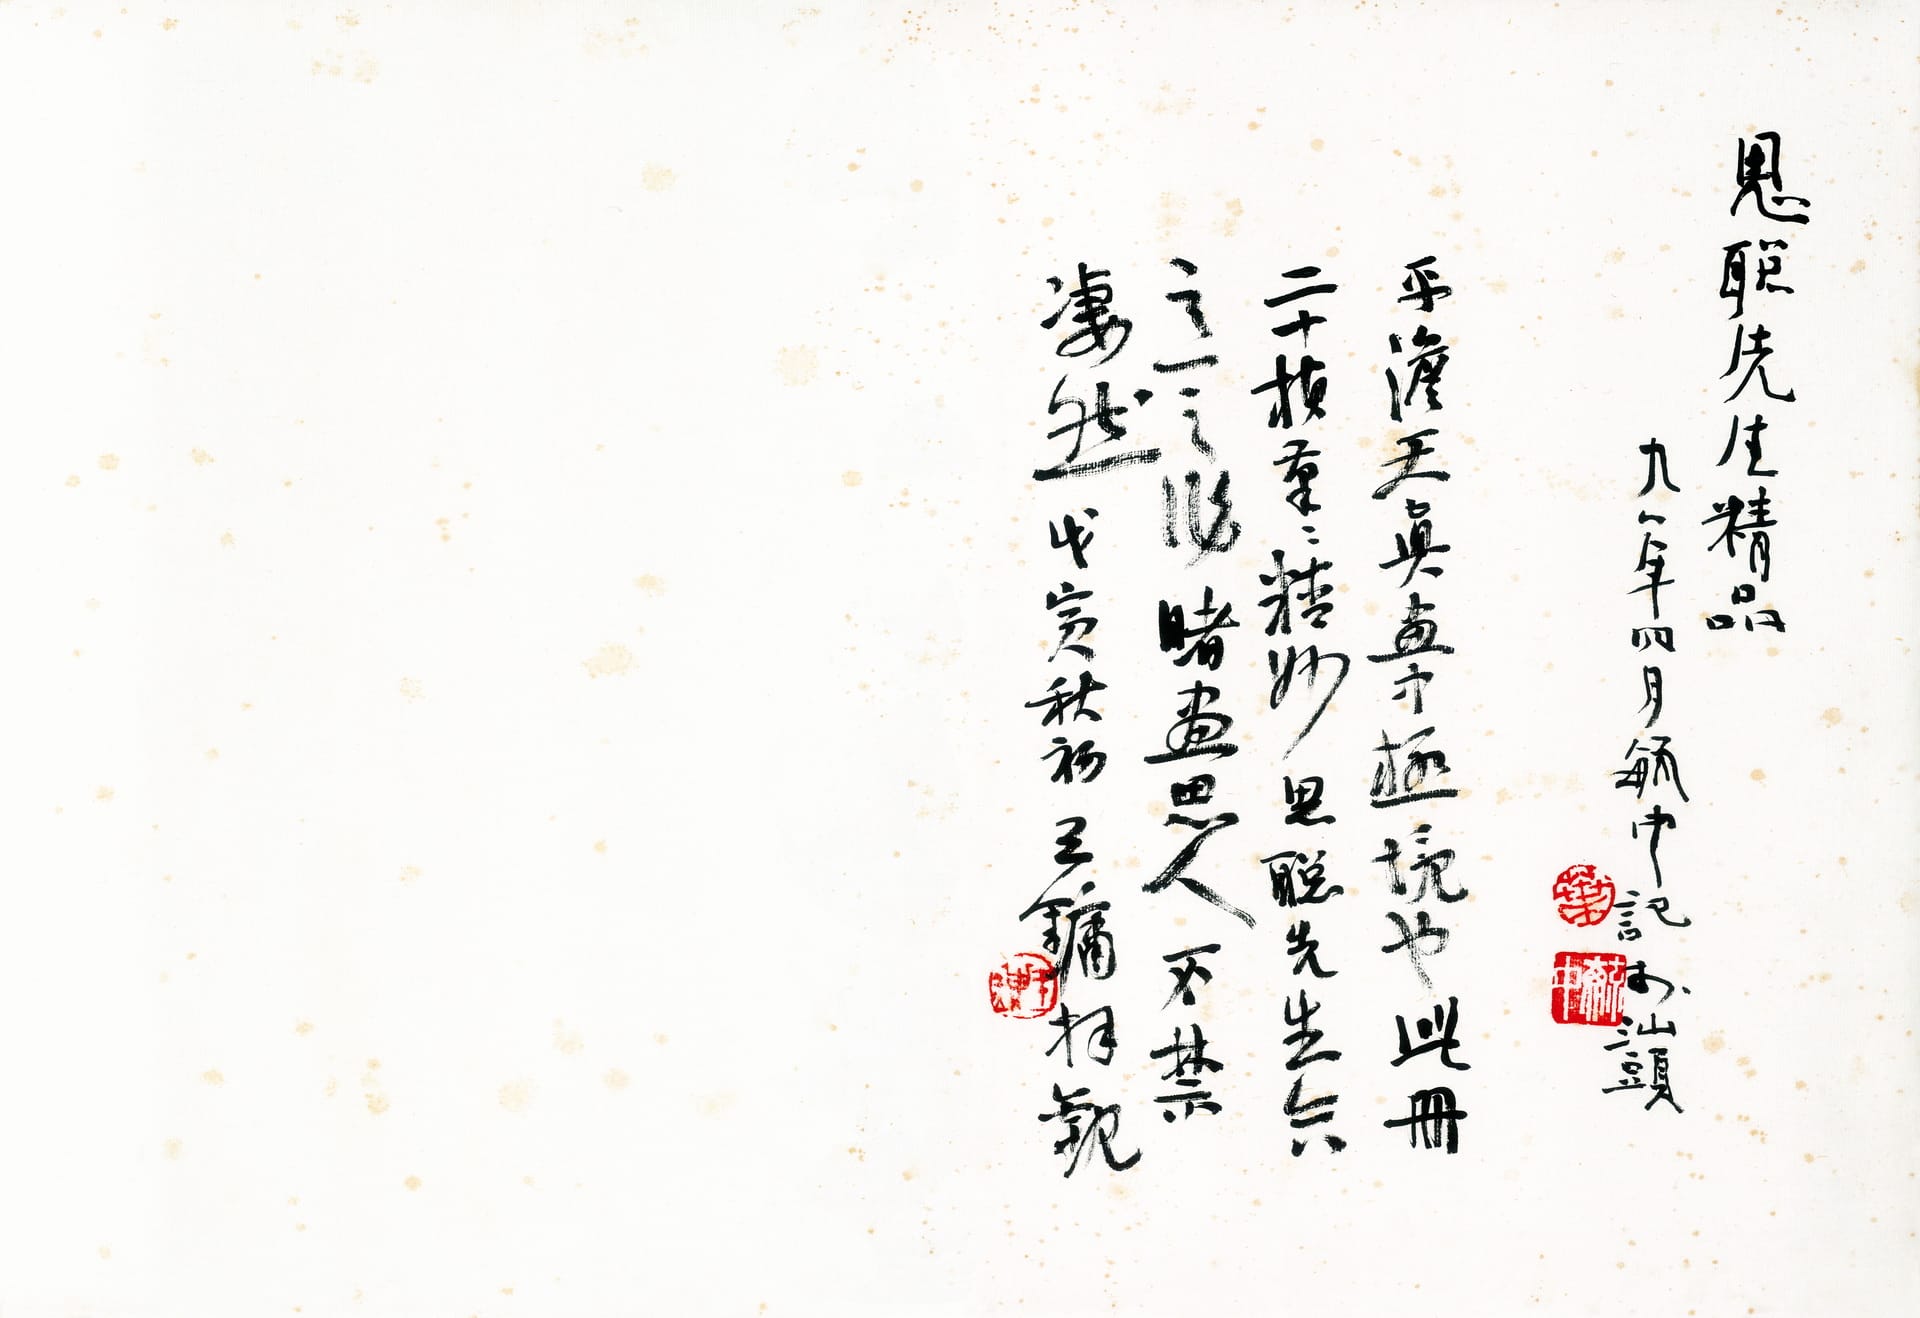 思聰先生精品
九八年四月毓中記於汕頭
平澹天真畫中極境也此冊
二十楨筆〻精妙思聰先生
之一之 睹畫思人不禁
凄然戊寅秋初王鏞拜觀
葉
毓中